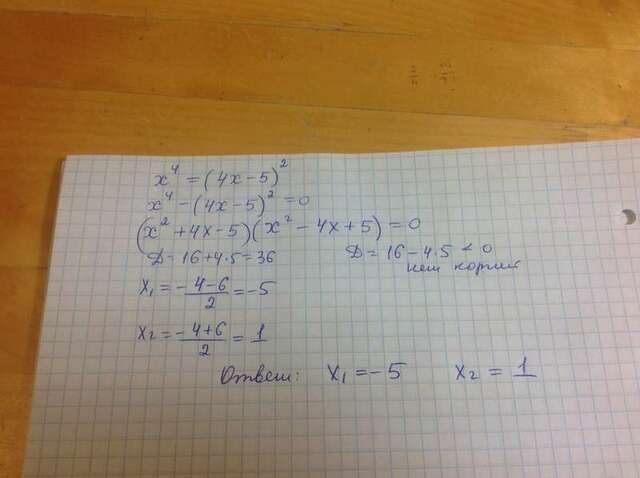 x⁴ = (4x-5)²
x⁴ - (4x-5)² = 0
(x² + 4x - 5)(x² - 4x + 5) = 0
D = 16 + 4·5 = 36 D = 16 - 4·5 < 0
нет корней
x₁ = (-4-6)/2 = -5
x₂ = (-4+6)/2 = 1
Ответ: x₁ = -5 x₂ = 1